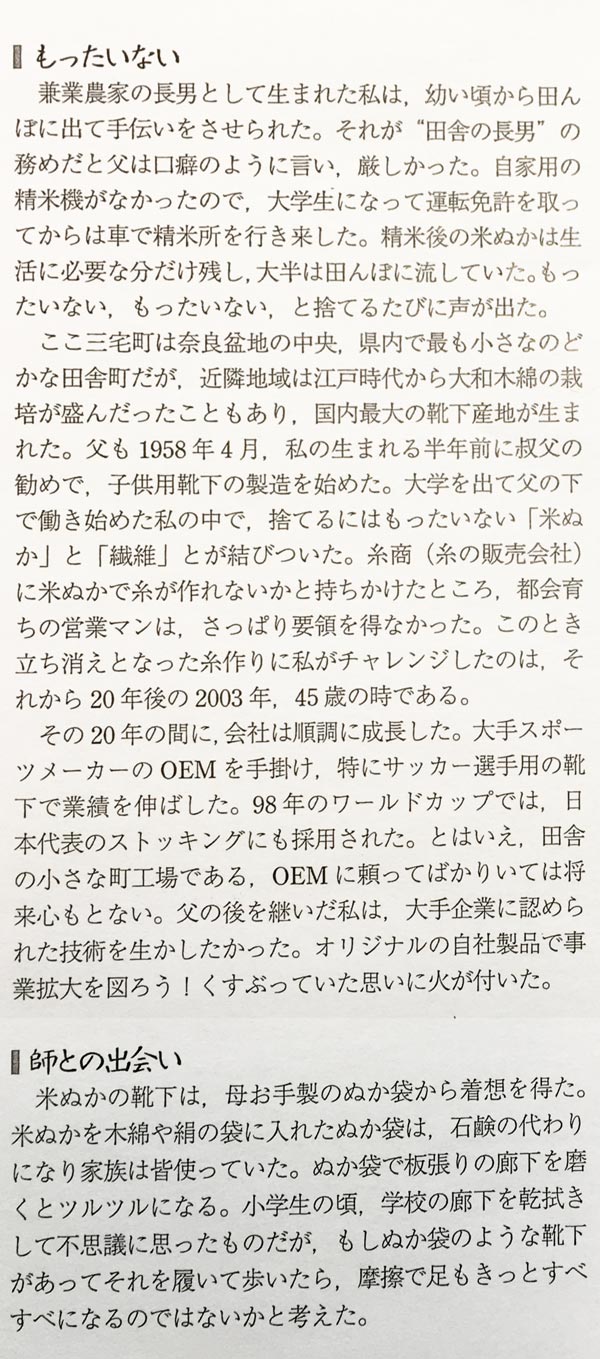 もったいない
兼業農家の長男として生まれた私は，幼い頃から田ん
ぼに出て手伝いをさせられた。それが“田舎の長男”の
務めだと父は口癖のように言い，厳しかった。自家用の
精米機がなかったので，大学生になって運転免許を取っ
てからは車で精米所を行き来した。精米後の米ぬかは生
活に必要な分だけ残し，大半は田んぼに流していた。もっ
たいない，もったいない，と捨てるたびに声が出た。
ここ三宅町は奈良盆地の中央，県内で最も小さなのど
かな田舎町だが，近隣地域は江戸時代から大和木綿の栽
培が盛んだったこともあり，国内最大の靴下産地が生ま
れた。父も 1958 年 4 月，私の生まれる半年前に叔父の
勧めで，子供用靴下の製造を始めた。大学を出て父の下
で働き始めた私の中で，捨てるにはもったいない「米ぬ
か」と「繊維」とが結びついた。糸商（糸の販売会社）
に米ぬかで糸が作れないかと持ちかけたところ，都会育
ちの営業マンは，さっぱり要領を得なかった。このとき
立ち消えとなった糸作りに私がチャレンジしたのは，そ
れから 20 年後の 2003 年，45 歳の時である。
その 20 年の間に，会社は順調に成長した。大手スポー
ツメーカーの OEM を手掛け，特にサッカー選手用の靴
下で業績を伸ばした。98 年のワールドカップでは，日
本代表のストッキングにも採用された。とはいえ，田舎
の小さな町工場である，OEM に頼ってばかりいては将
来心もとない。父の後を継いだ私は，大手企業に認めら
れた技術を生かしたかった。オリジナルの自社製品で事
業拡大を図ろう！くすぶっていた思いに火が付いた。
師との出会い
米ぬかの靴下は，母お手製のぬか袋から着想を得た。
米ぬかを木綿や絹の袋に入れたぬか袋は，石鹸の代わり
になり家族は皆使っていた。ぬか袋で板張りの廊下を磨
くとツルツルになる。小学生の頃，学校の廊下を乾拭き
して不思議に思ったものだが，もしぬか袋のような靴下
があってそれを履いて歩いたら，摩擦で足もきっとすべ
すべになるのではないかと考えた。